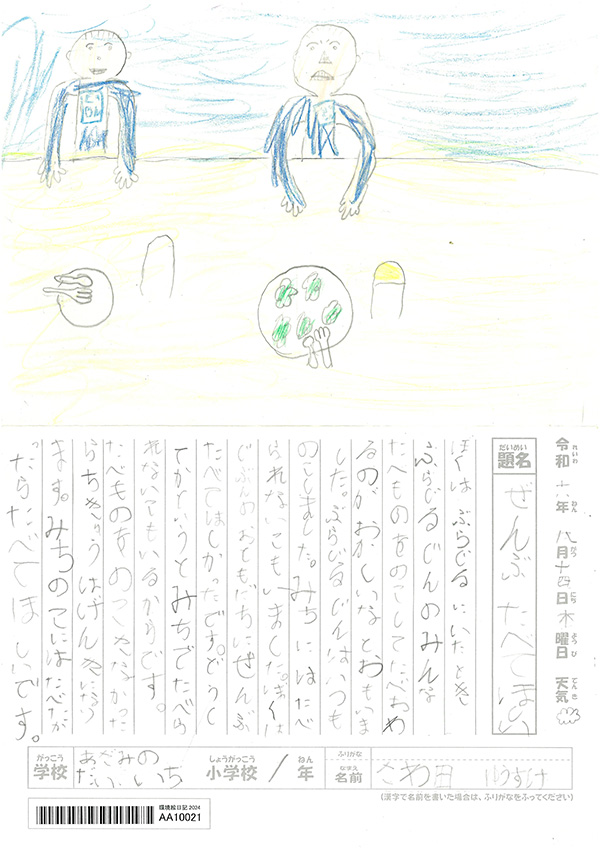 令和 六年 八月 十四日 水曜日 天気
れいわ ねん がつ にち ようび てんき
だいめい
題名 ぜんぶ たべてほしい
ぼくは ぶらじるにいたとき
ぶらじるじんのみんな
たべものをのこしてたべおわ
るのがおかしいなとおもいま
した。ぶらじるじんはいつも
のこしました。みちにはたべ
られないこもいました。ぼくは
じぶんのおともだちにぜんぶ
たべてほしかったです。どうし
てかというとみちでたべら
れないこでもいるからです。
たべものをのこさなかった
らちきゅうはげんきになり
ます。みちのこにはたべたか
ったらたべてほしいです。
がっこう しょうがっこう ねん ふりがな
学校 あざみの 小学校 年 なまえ
だいいち 名前 さわ田
(漢字で名前を書いた場合は、ふりがなをふってください)
環境絵日記 2024
AA10021